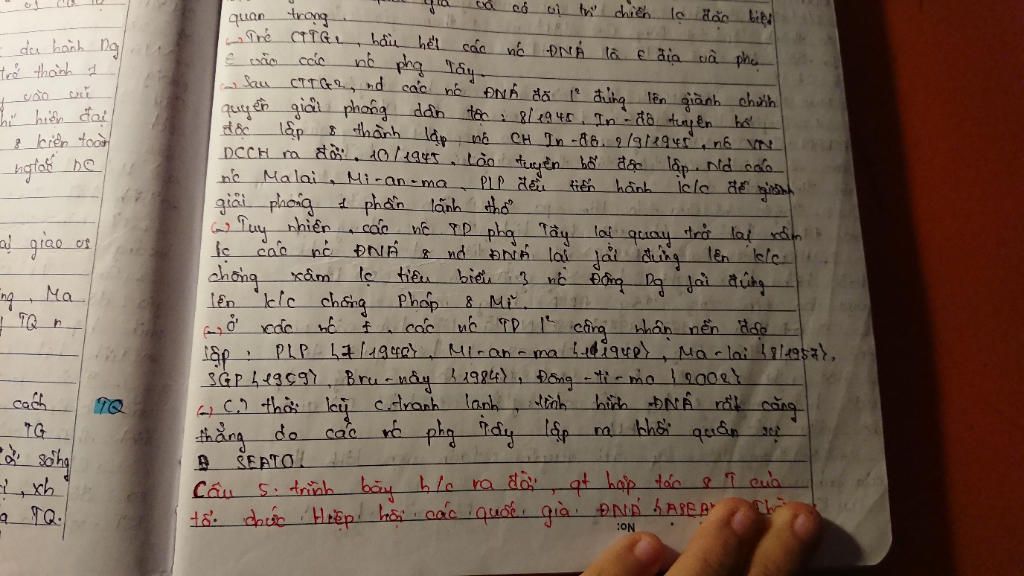 du hành Dg
trở thành 1
hiện đại
& kiên toàn
nghắt DC
giao
Ma
TQ n
cách
TG
sống
xh
TQ.
TQ
có vị trí chiến lc đặc biệt
quan trọng.
(-) Trc CTTG2, hầu hết các nc ĐNÁ là € địa và phụ
€ vào các nc phg Tây.
(-) Sau CTTG2, nd các nc ĐNÁ đã l² đứng lên giành chính
quyền giải phóng dân tộc: 8/1945, In-đô tuyên bố
độc lập & thành lập nc CH In-đô, 2/9/1945, nc VN
DCCH ra đời, 10/1945, Lào tuyên bố độc lập. Nd các
nc Malai, Mi-an-ma, PLP đều tiến hành k/c để giành
giải phóng 1 phần lãnh thổ
(-) Tuy nhiên, các nc TD phg Tây lại quay trở lại xâm
lc các nc ĐNÁ & nd ĐNÁ lại fải đứng lên k/c
chống xâm lc tiêu biểu 3 nc Đông Dg fải đứng
lên k/c chống Pháp & Mĩ.
(-) Ở các nc ≠, các nc TD l² công nhận nền độc
lập: PLP {7/1946}, Mi-an-ma {1/1948}, Ma-lai {8/1957},
SGP {1959}, Bru-nây {1984}, Đông-ti-mo {2002}
(-) thời kỳ c.tranh lạnh, tình hình ĐNÁ rất căng
thẳng do các nc phg Tây lập ra khối quân sự
SEATO.
Câu 5: trình bày h/c ra đời, qt hợp tác & T của
tổ chức Hiệp hội các quốc gia ĐNÁ {ASEAN
No: